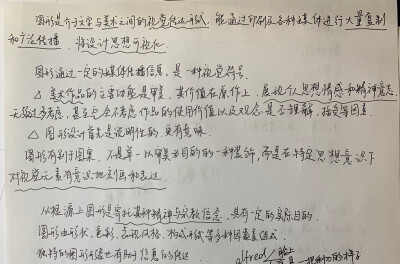 图形是介于文学与美术之间的视觉传达手段，能通过印刷及各种媒体进行大量复制
和广泛传播，将设计思想可视化
图形通过一定的媒体传播信息，是一种视觉符号。
△ 美术作品的主要功能是审美，其价值在原作上，重视个人思想情感和精神意志，
无须过多考虑，甚至完全不考虑作品的使用价值以及观念是否理解，接受等因素。
△ 图形设计首先是说明性的，具有意味。
图形有别于图案，不是单一以审美为目的的一种装饰，而是在特定思想意识下
对视觉元素有意识地刻画和表达
从根源上图形是寄托某种精神与宗教信念，具有一定的实际目的。
图形由形状、色彩、艺术风格、构成手法等多种因素组成。
独特的图形形态也有助于信息的传达
alfred